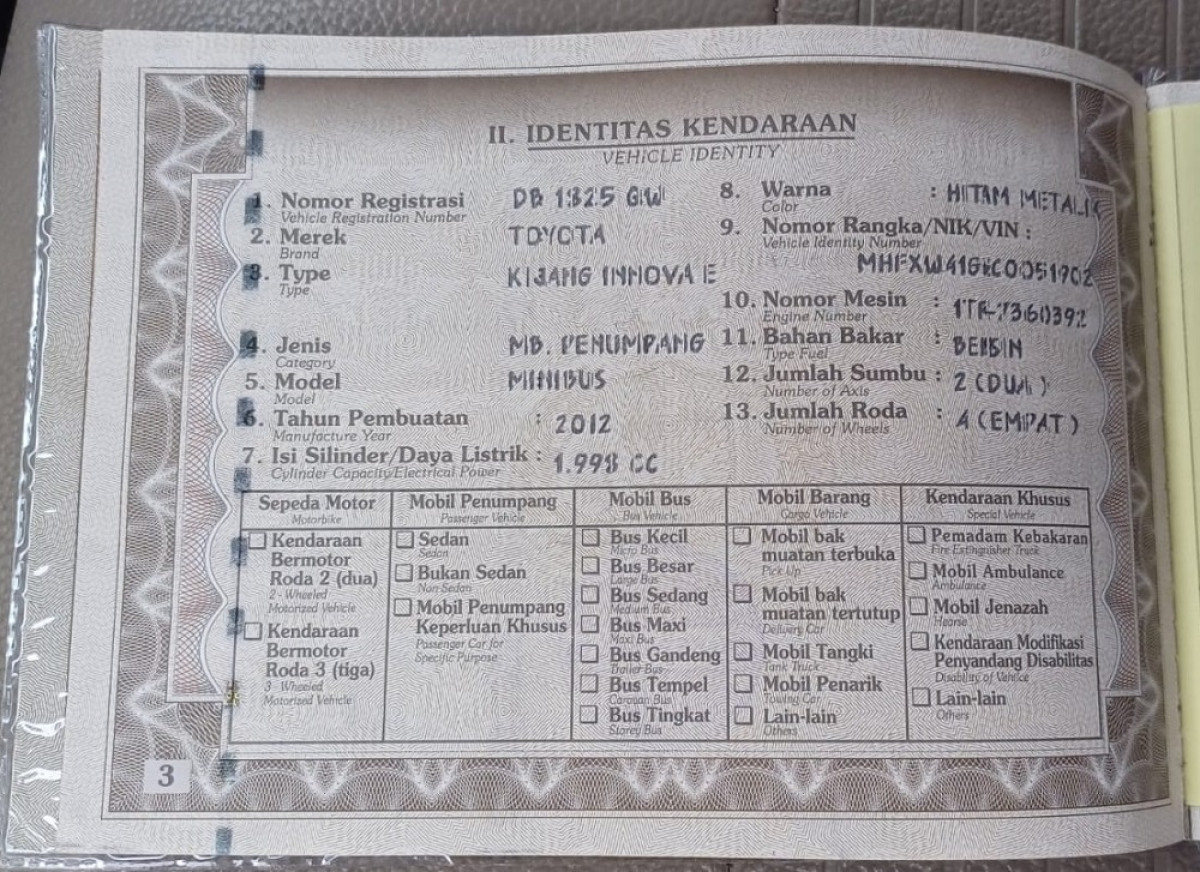 II. IDENTITAS KENDARAAN
VEHICLE IDENTITY
1. Nomor Registrasi DB 1825 GW
Vehicle Registration Number
2. Merek TOYOTA
Brand
3. Type KIJANG INNOVA E
Type
4. Jenis MB. PENUMPANG
Category
5. Model MINIBUS
Model
6. Tahun Pembuatan : 2012
Manufacture Year
7. Isi Silinder/Daya Listrik : 1.998 CC
Cylinder Capacity/Electrical Power
8. Warna : HITAM METALIK
Color
9. Nomor Rangka/NIK/VIN :
Vehicle Identity Number
10. Nomor Mesin : 1TR-7360392
Engine Number
11. Bahan Bakar : BENSIN
Type Fuel
12. Jumlah Sumbu : 2 (DUA)
Number of Axis
13. Jumlah Roda : 4 (EMPAT)
Number of Wheels
Sepeda Motor
Motorbike
Kendaraan
Bermotor
Roda 2 (dua)
2 - Wheeled
Motorized Vehicle
Kendaraan
Bermotor
Roda 3 (tiga)
3 Wheeled
Motorized Vehicle
Mobil Penumpang
Passenger Vehicle
Sedan
Sedan
Bukan Sedan
Non Sedan
Mobil Penumpang
Keperluan Khusus
Passenger Car for
Specific Purpose
Mobil Bus
Bus Vehicle
Bus Kecil
Micro Bus
Bus Besar
Large Bus
Bus Sedang
Medium Bus
Bus Maxi
Maxi Bus
Bus Gandeng
Trailer Bus
Bus Tempel
Caravan Bus
Bus Tingkat
Storey Bus
Mobil Barang
Cargo Vehicle
Mobil bak
muatan terbuka
Pick Up
Mobil bak
muatan tertutup
Delivery Car
Mobil Tangki
Tank Truck
Mobil Penarik
Towing Car
Lain-lain
Others
Kendaraan Khusus
Special Vehicle
Pemadam Kebakaran
Fire Extinguisher Truck
Mobil Ambulance
Ambulance
Mobil Jenazah
Hearse
Kendaraan Modifikasi
Penyandang Disabilitas
Disability of Vehilce
Lain-lain
Others
3